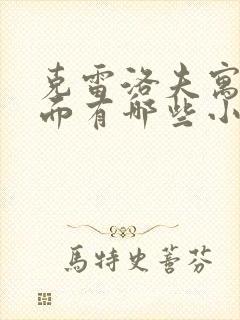 克雷洛夫寓
而有哪些小
馬特史菩芬